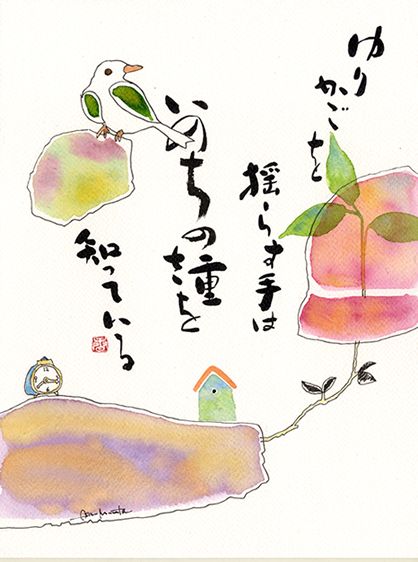 ゆりかごを
揺らす手は
いのちの重さを
知っている